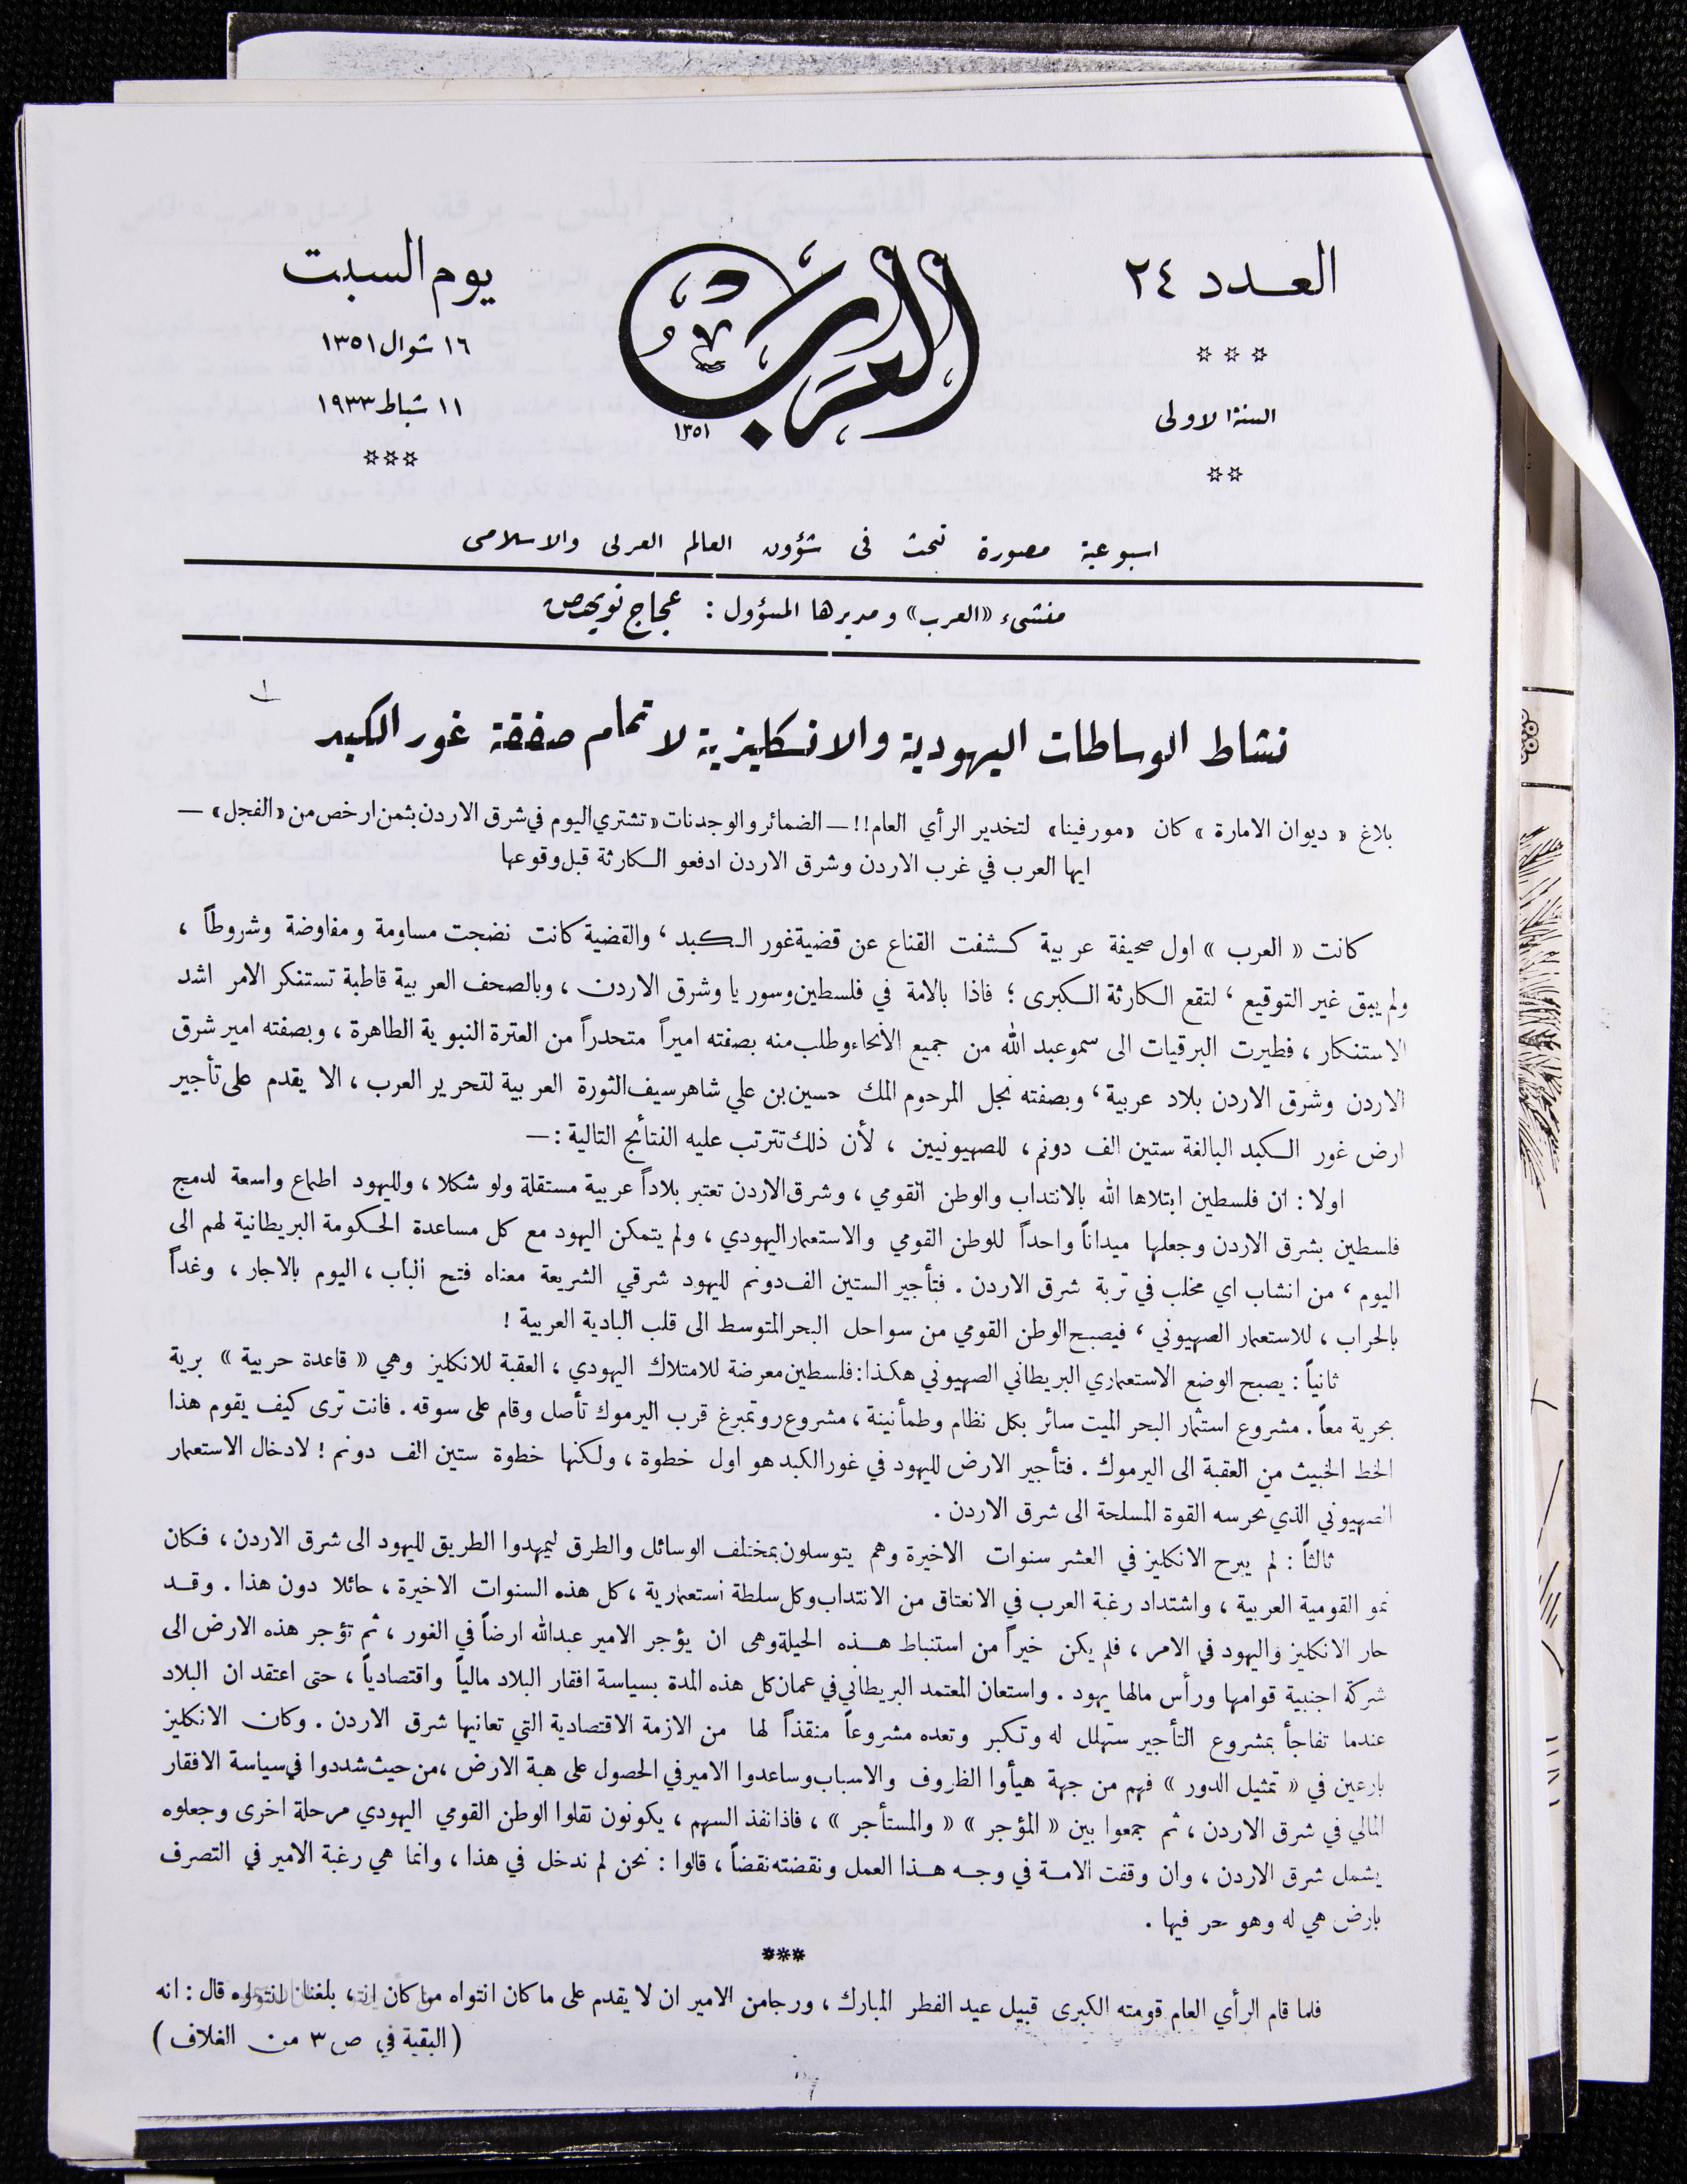 العدد ٢٤
السنة الاولى
العرب
١٣٥١
يوم السبت
١٦ شوال ١٣٥١
١١ شباط ١٩٣٣
اسبوعية مصورة تبحث فى شؤون العالم العربى والاسلامى
منشىء «العرب» ومديرها المسؤول : عجاج نويهض
نشاط الوساطات اليهودية والانكليزية لاتمام صفقة غور الكبد
بلاغ « ديوان الامارة » كان «مورفينا» لتخدير الرأي العام!! — الضمائر والوجدنات «تشترى اليوم في شرق الاردن بثمن ارخص من «الفجل» —
ايها العرب في غرب الاردن وشرق الاردن ادفعو الكارثة قبل وقوعها
كانت « العرب » اول صحيفة عربية كشفت القناع عن قضية غور الكبد ، والقضية كانت نضجت مساومة ومفاوضة وشروطاً ،
ولم يبق غير التوقيع ، لتقع الكارثة الكبرى ؛ فاذا بالامة في فلسطين وسوريا وشرق الاردن ، وبالصحف العربية قاطبة تستنكر الامر اشد
الاستنكار ، فطيرت البرقيات الى سمو عبد الله من جميع الانحاء وطلب منه بصفته اميراً متحدراً من العترة النبوية الطاهرة ، وبصفته امير شرق
الاردن وشرق الاردن بلاد عربية ، وبصفته نجل المرحوم الملك حسين بن علي شاهر سيف الثورة العربية لتحرير العرب ، الا يقدم على تأجير
ارض غور الكبد البالغة ستين الف دونم ، للصهيونيين ، لأن ذلك تترتب عليه النتائج التالية : —
اولا : ان فلسطين ابتلاها الله بالانتداب والوطن القومي ، وشرق الاردن تعتبر بلاداً عربية مستقلة ولو شكلا ، ولليهود اطماع واسعة لدمج
فلسطين بشرق الاردن وجعلها ميداناً واحداً للوطن القومي والاستعمار اليهودي ، ولم يتمكن اليهود مع كل مساعدة الحكومة البريطانية لهم الى
اليوم ، من انشاب اي مخلب في تربة شرق الاردن . فتأجير الستين الف دونم لليهود شرقي الشريعة معناه فتح الباب ، اليوم بالاجار ، وغداً
بالحراب ، للاستعمار الصهيوني ، فيصبح الوطن القومي من سواحل البحر المتوسط الى قلب البادية العربية !
ثانياً : يصبح الوضع الاستعماري البريطاني الصهيوني هكذا : فلسطين معرضة للامتلاك اليهودي ، العقبة للانكليز وهي « قاعدة حربية » برية
بحرية معاً . مشروع استثمار البحر الميت سائر بكل نظام وطمأنينة ، مشروع روتمبرغ قرب اليرموك تأصل وقام على سوقه . فانت ترى كيف يقوم هذا
الخط الخبيث من العقبة الى اليرموك . فتأجير الارض لليهود في غور الكبد هو اول خطوة ، ولكنها خطوة ستين الف دونم ! لادخال الاستعمار
الصهيوني الذي تحرسه القوة المسلحة الى شرق الاردن .
ثالثاً : لم يبرح الانكليز في العشر سنوات الاخيرة وهم يتوسلون بمختلف الوسائل والطرق ليمهدوا الطريق لليهود الى شرق الاردن ، فكان
نمو القومية العربية ، واشتداد رغبة العرب في الانعتاق من الانتداب وكل سلطة استعمارية ، كل هذه السنوات الاخيرة ، حائلا دون هذا . وقد
حار الانكليز واليهود في الامر ، فلم يكن خيراً من استنباط هذه الحيلة وهى ان يؤجر الامير عبدالله ارضاً في الغور ، ثم تؤجر هذه الارض الى
شركة اجنبية قوامها ورأس مالها يهود . واستعان المعتمد البريطاني في عمان كل هذه المدة بسياسة افقار البلاد مالياً واقتصادياً ، حتى اعتقد ان البلاد
عندما تفاجأ بمشروع التأجير ستهلل له وتكبر وتعده مشروعاً منقذاً لها من الازمة الاقتصادية التي تعانيها شرق الاردن . وكان الانكليز
بارعين في « تمثيل الدور » فهم من جهة هيأوا الظروف والاسباب وساعدوا الامير في الحصول على هبة الارض ، من حيث شددوا في سياسة الافقار
المالي في شرق الاردن ، ثم جمعوا بين « المؤجر » « والمستأجر » ، فاذا نفذ السهم ، يكونون نقلوا الوطن القومي اليهودي مرحلة اخرى وجعلوه
يشمل شرق الاردن ، وان وقفت الامة في وجه هذا العمل ونقضته نقضاً ، قالوا : نحن لم ندخل في هذا ، وانما هي رغبة الامير في التصرف
بارض هي له وهو حر فيها .
فلما قام الرأي العام قومته الكبرى قبيل عيد الفطر المبارك ، ورجا من الامير ان لا يقدم على ما كان انتواه بلغنا قال : انه
( البقية في ص ٣ من الغلاف )